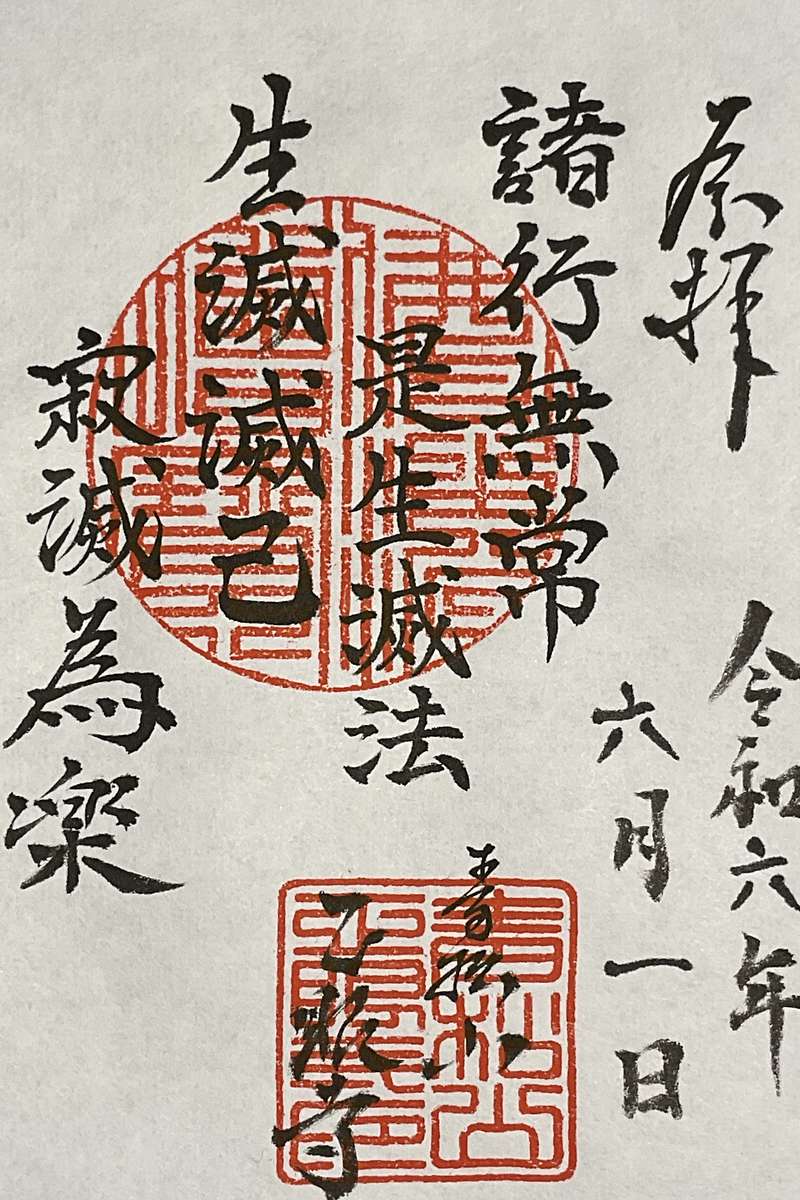 奉拝
令和六年
六月一日
諸行無常
是生滅法
生滅滅己
寂滅為楽
青松山
寺